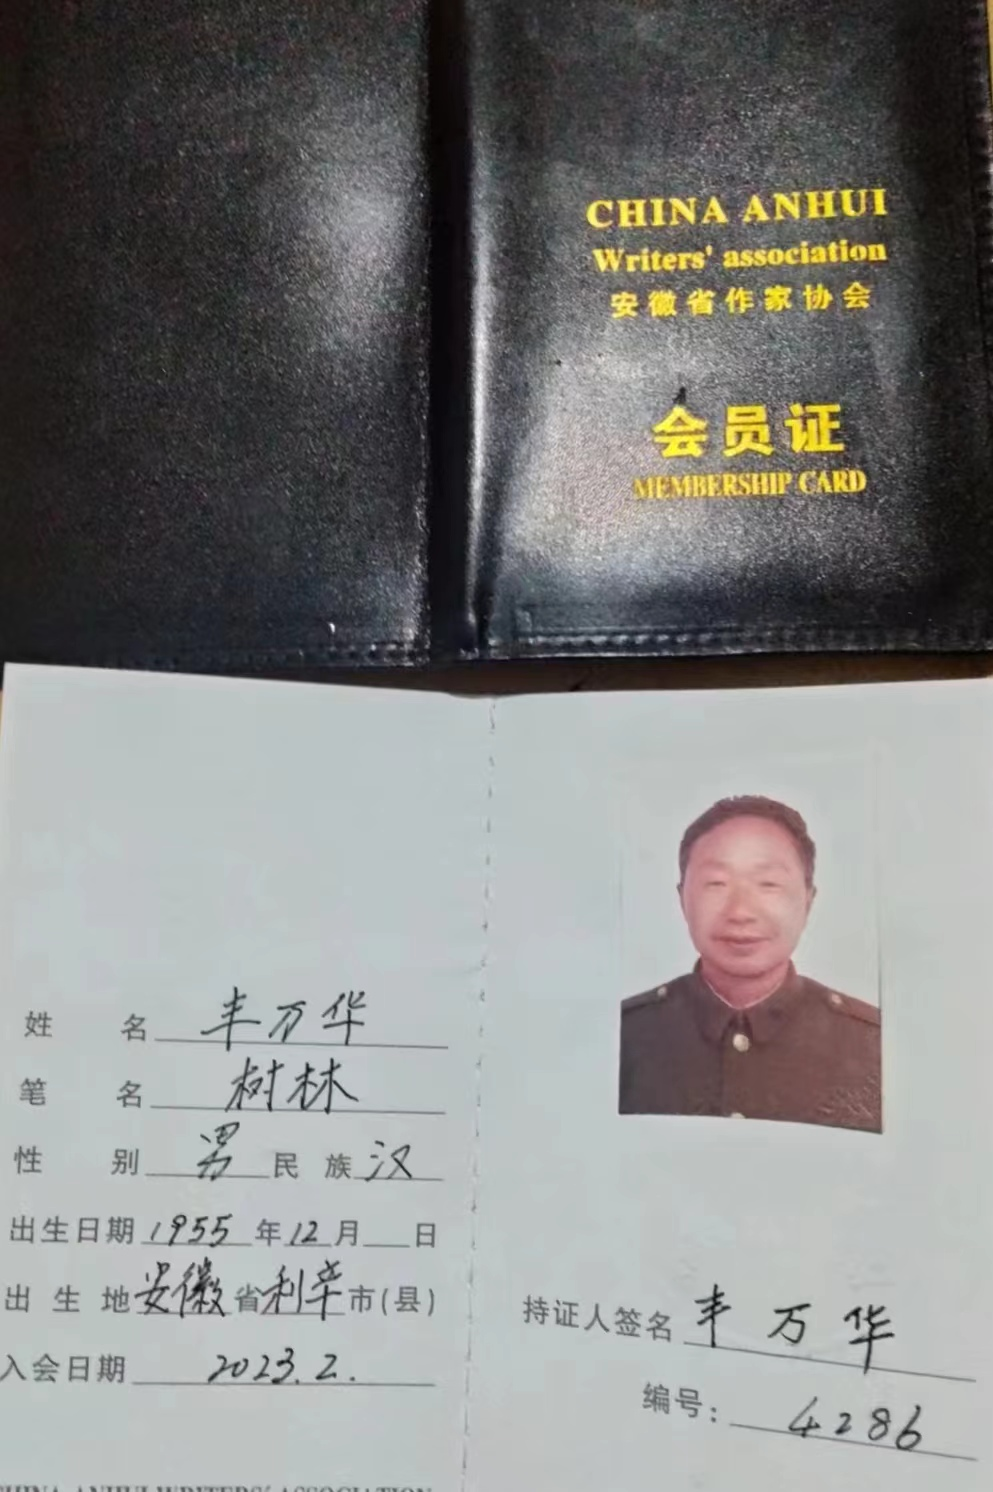 CHINA ANHUI
Writers' association
安徽省作家协会
会员证
MEMBERSHIP CARD
姓 名 丰万华
笔 名 树林
性 别 男 民 族 汉
出生日期 1955 年 12 月 日
出 生 地 安徽 省 利辛 市(县)
入会日期 2023.2.
持证人签名 丰万华
编号: 4286
CHINA ANHUI WRITERS' ASSOCIATION